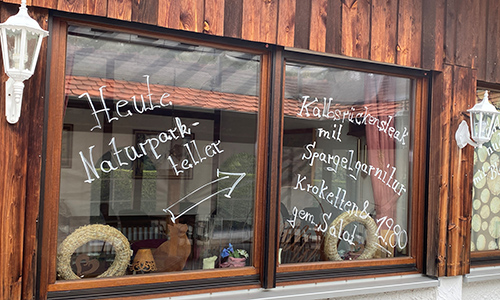 Heute
Naturpark-
teller
Kalbsrückensteak
mit
Spargelgarnitur
Kroketten &
gem. Salat 19.80